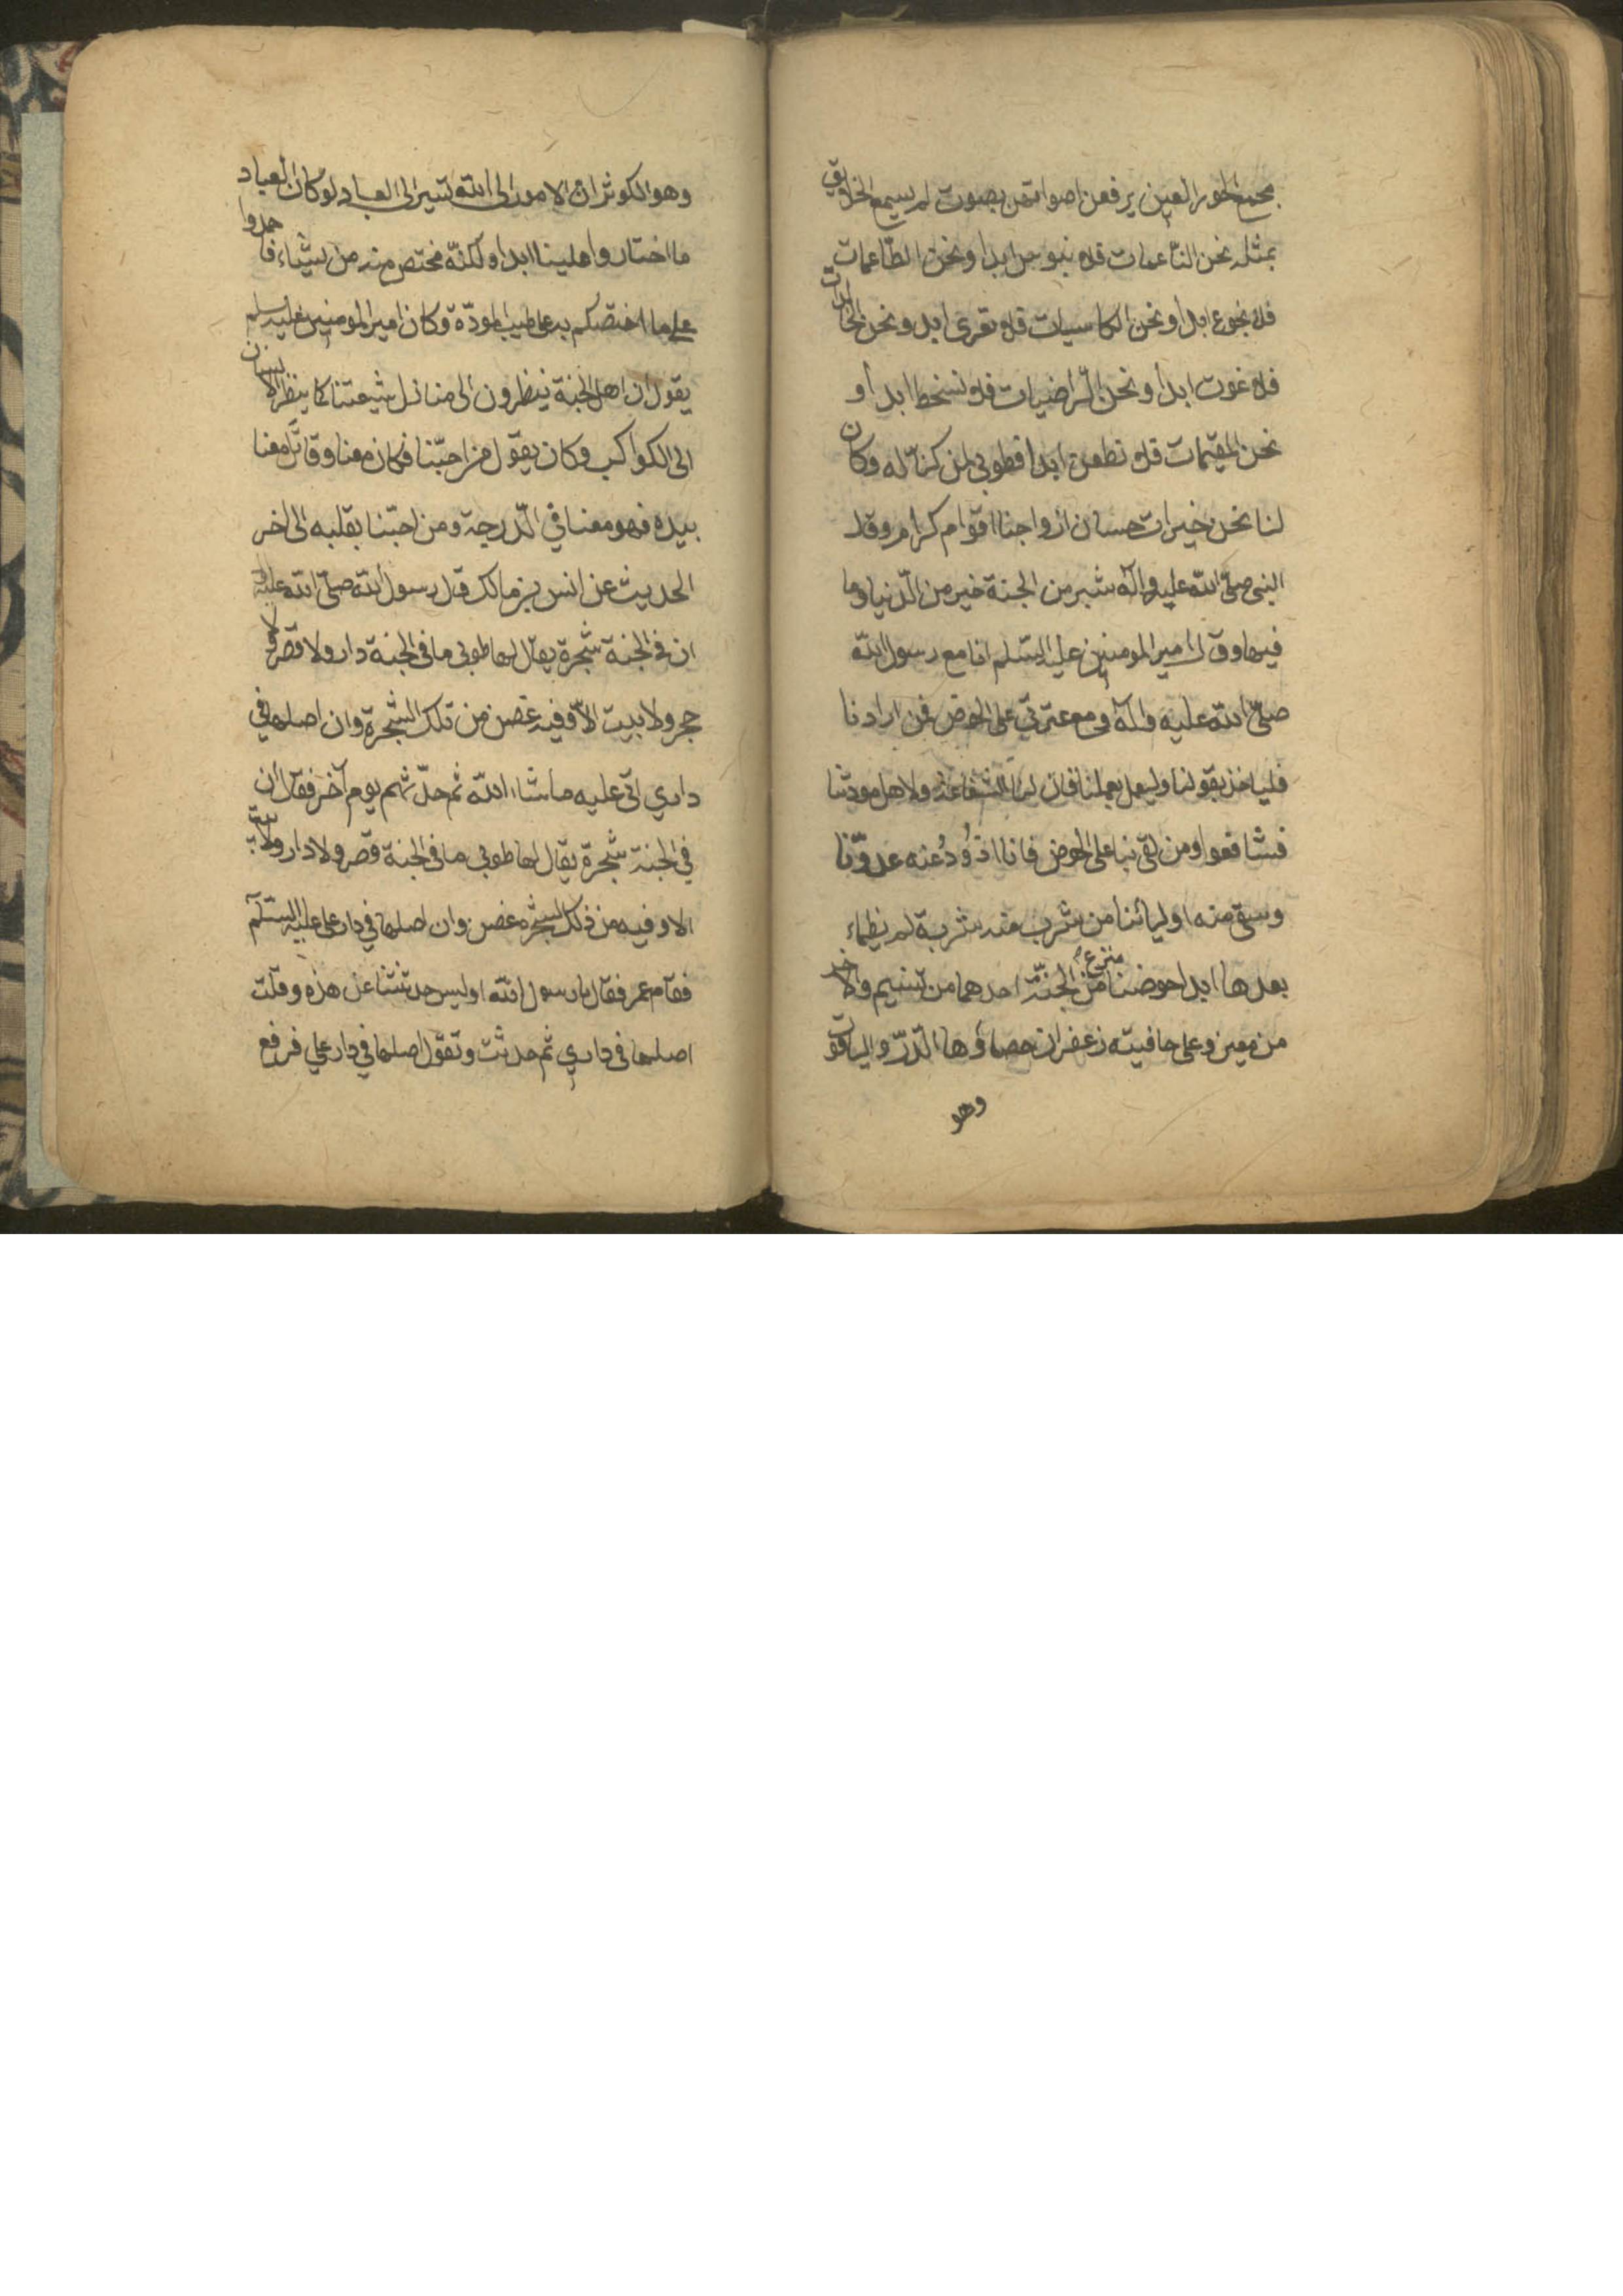 بمجمع الحور العين يرفعن اصواتهن بصوت لم يسمع الخلايق
بمثله نحن الناعمات فلا نبوس ابدا ونحن الطاعمات
فلا نجوع ابدا ونحن الكاسيات فلا نعرى ابدا ونحن الخالدات
فلا نموت ابدا ونحن الرّاضيات فلا نسخط ابدا و
نحن المقيمات فلا نظعن ابدا فطوبى لمن كنّا له وكان
لنا نحن خيرات حسان ازواجنا اقوام كرام وقال
النبى صلّى الله عليه وآله شبر من الجنة خير من الدّنيا وما
فيها وقال امير المومنين عليه السّلم انا مع رسول الله
صلّى الله عليه وآله ومع عترتى على الحوض فمن ارادنا
فلياخذ بقولنا وليعمل بعملنا فان لنا الشفاعة ولاهل مودّتنا
فشافعوا ومن لقى بنا على الحوض فانا اذُودُ عنه عدوّنا
وسقى منه اوليائنا من شرب منه شربة لم يظماء
بعدها ابدا حوضنا منزع من الجنّة احدهما من تسنيم والاخر
من معين وعلى حافيته زعفران حصاؤها الدّرّ والياقوت
وهو
وهو الكوثر ان الامور الى الله تسير الى العباد لو كان العباد
ما اختاروا علينا ابدا ولكنّه مختص منه من يشاء فاحمدوا
على ما اختصّكم به على طيب المودّة وكان امير المومنين عليه سلم
يقول ان اهل الجنة ينظرون الى منازل شيعتنا كما ينظر الانسان
الى الكواكب وكان يقول من احبّنا فكان معنا وقاتل معنا
بيده فهو معنا في الدّرجة ومن احبّنا بقلبه الى اخر
الحديث عن انس بن مالك قال رسول الله صلّى الله عليه
ان فى الجنة شجرة يقال لها طوبى ما فى الجنة دار ولا قصر ولا
حجر ولا بيت الّا وفيه غصن من تلك الشّجرة وان اصلها في
داري اتى عليه ما شاء الله ثم حدّثهم يوم آخر فقال ان
في الجنة شجرة يقال لها طوبى ما فى الجنة قصر ولا دار ولا بيت
الا وفيه من ذلك الشجره غصن وان اصلها في دار على عليه السّلم
فقام عمر فقال يا رسول الله اوليس حدثتنا عن هذه وقلت
اصلها فى داري ثم حدثت وتقول اصلها في دار علي فرفع